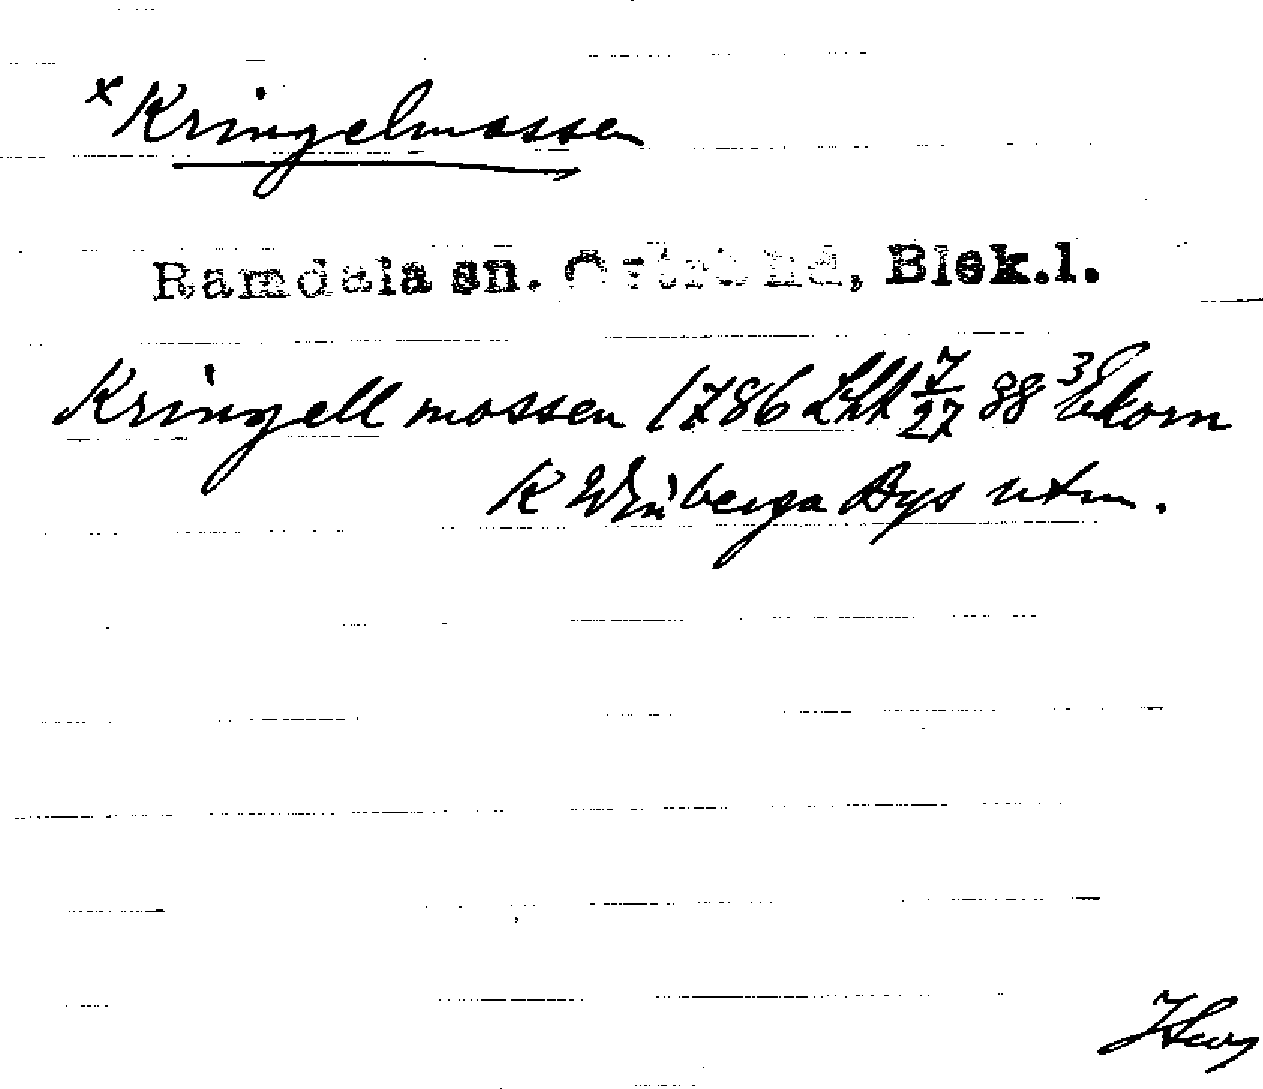 x Kringelmossen
Ramdala sn. Östra hd, Blek.l.
Kringell mossen 1786 Lht 7/27 88 3 Ekorn
K Winberga Bys utm.